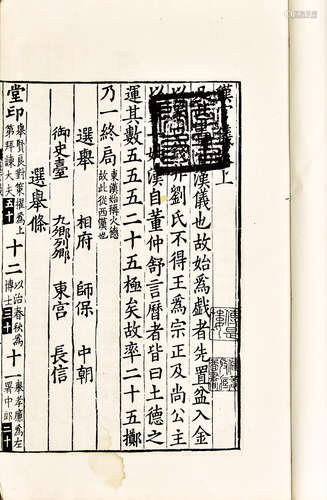 漢 上
漢儀也故始爲戲者先置盆入金
劉氏不得王爲宗正及尚公主
以 始漢自董仲舒言曆者皆曰土德之
運其數五五五二十五極矣故率二十五擲
乃一終局 東漢始稱火德故此從西漢也
選舉 相府 師保 中朝
御史臺 九卿列卿 東宮 長信
選舉條
堂印 舉賢良對策擢爲上第拜諫大夫五十 十二 以治春秋爲博士三十 十一 舉孝廉爲左署中郎二十